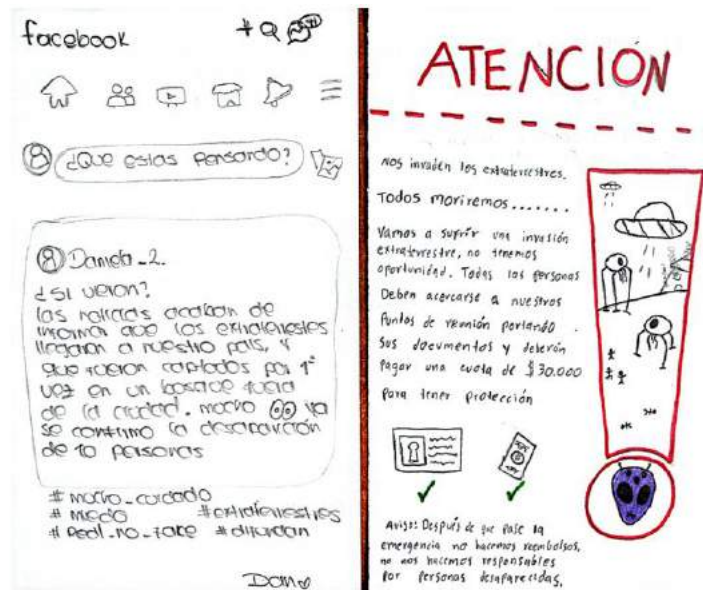 facebook
¿Que estas Pensando?
Daniela_2.
¿Si vieron?
las noticias acaban de
informar que los extraterrestes
llegaron a nuestro país, y
que fueron captados por 1ª
vez en un bosque fuera
de la ciudad. mucho ya
se confirmo la desaparición
de 10 personas
# mucho_cuidado
# miedo #extraterrestres
# Real_no_fake #difundan
Dan
ATENCIÓN
Nos invaden los extraterrestres.
Todos moriremos.......
Vamos a sufrir una invasión
extraterrestre, no tenemos
oportunidad. Todas las personas
Deben acercarse a nuestros
Puntos de reunión portando
sus documentos y deberán
Pagar una cuota de $30.000
Para tener protección
Aviso: Después de que pase la
emergencia no hacemos reembolsos,
no nos hacemos responsables
Por personas desaparecidas.